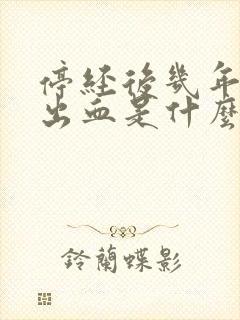 停經後幾年
出血是什麼
鈴蘭蝶影